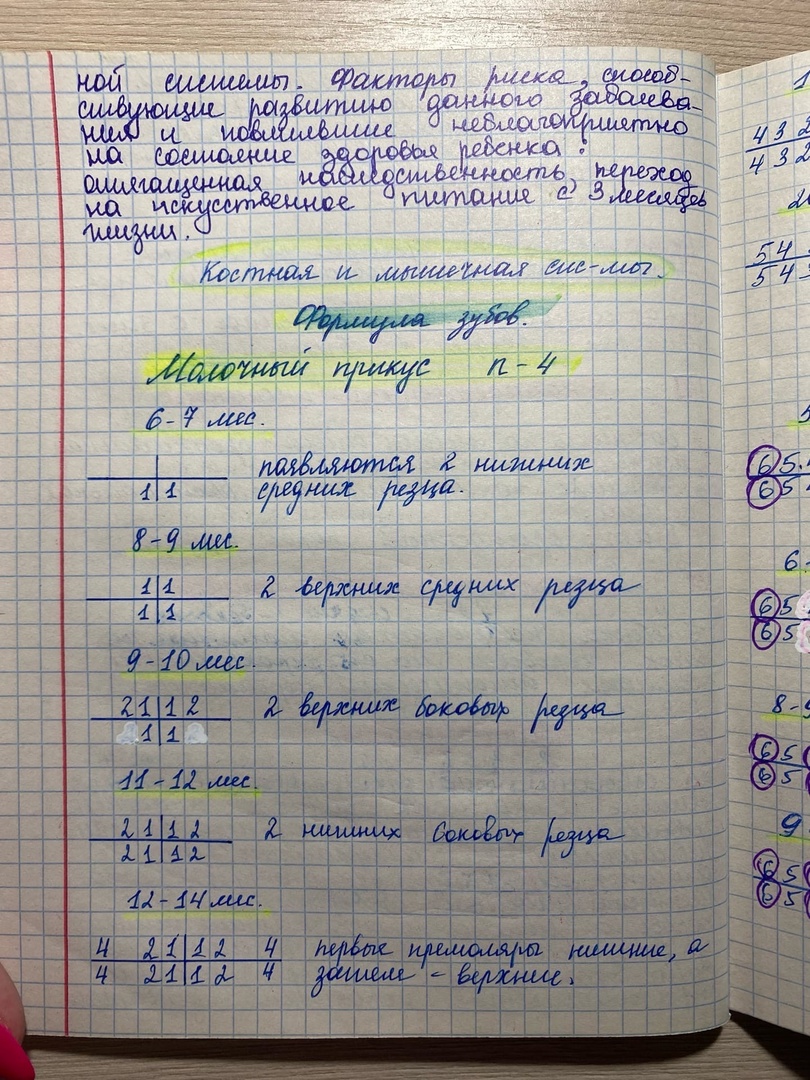 ной системы. Факторы риска, способ-
ствующие развитию данного заболева-
ния и повлиявшие неблагоприятно
на состояние здоровья ребёнка:
отягащенная наследственность, переход
на искусственное питание с 3 месяцев
жизни.
Костная и мышечная сис-мы.
Формула зубов.
Молочный прикус n - 4
6-7 мес.
1|1
появляются 2 нижних
средних резца.
8-9 мес.
1|1
1|1
2 верхних средних резца
9-10 мес.
21|12
1|1
2 верхних боковых резца
11-12 мес.
21|12
21|12
2 нижних боковых резца
12-14 мес.
4 21|12 4
4 21|12 4
первые премоляры нижние, а
затем - верхние.
4 3 2
4 3 2
5 4
5 4 3
6 5
6 5 4
6-
6 5
6 5
8-9
6 5
6 5
9
6 5
6 5